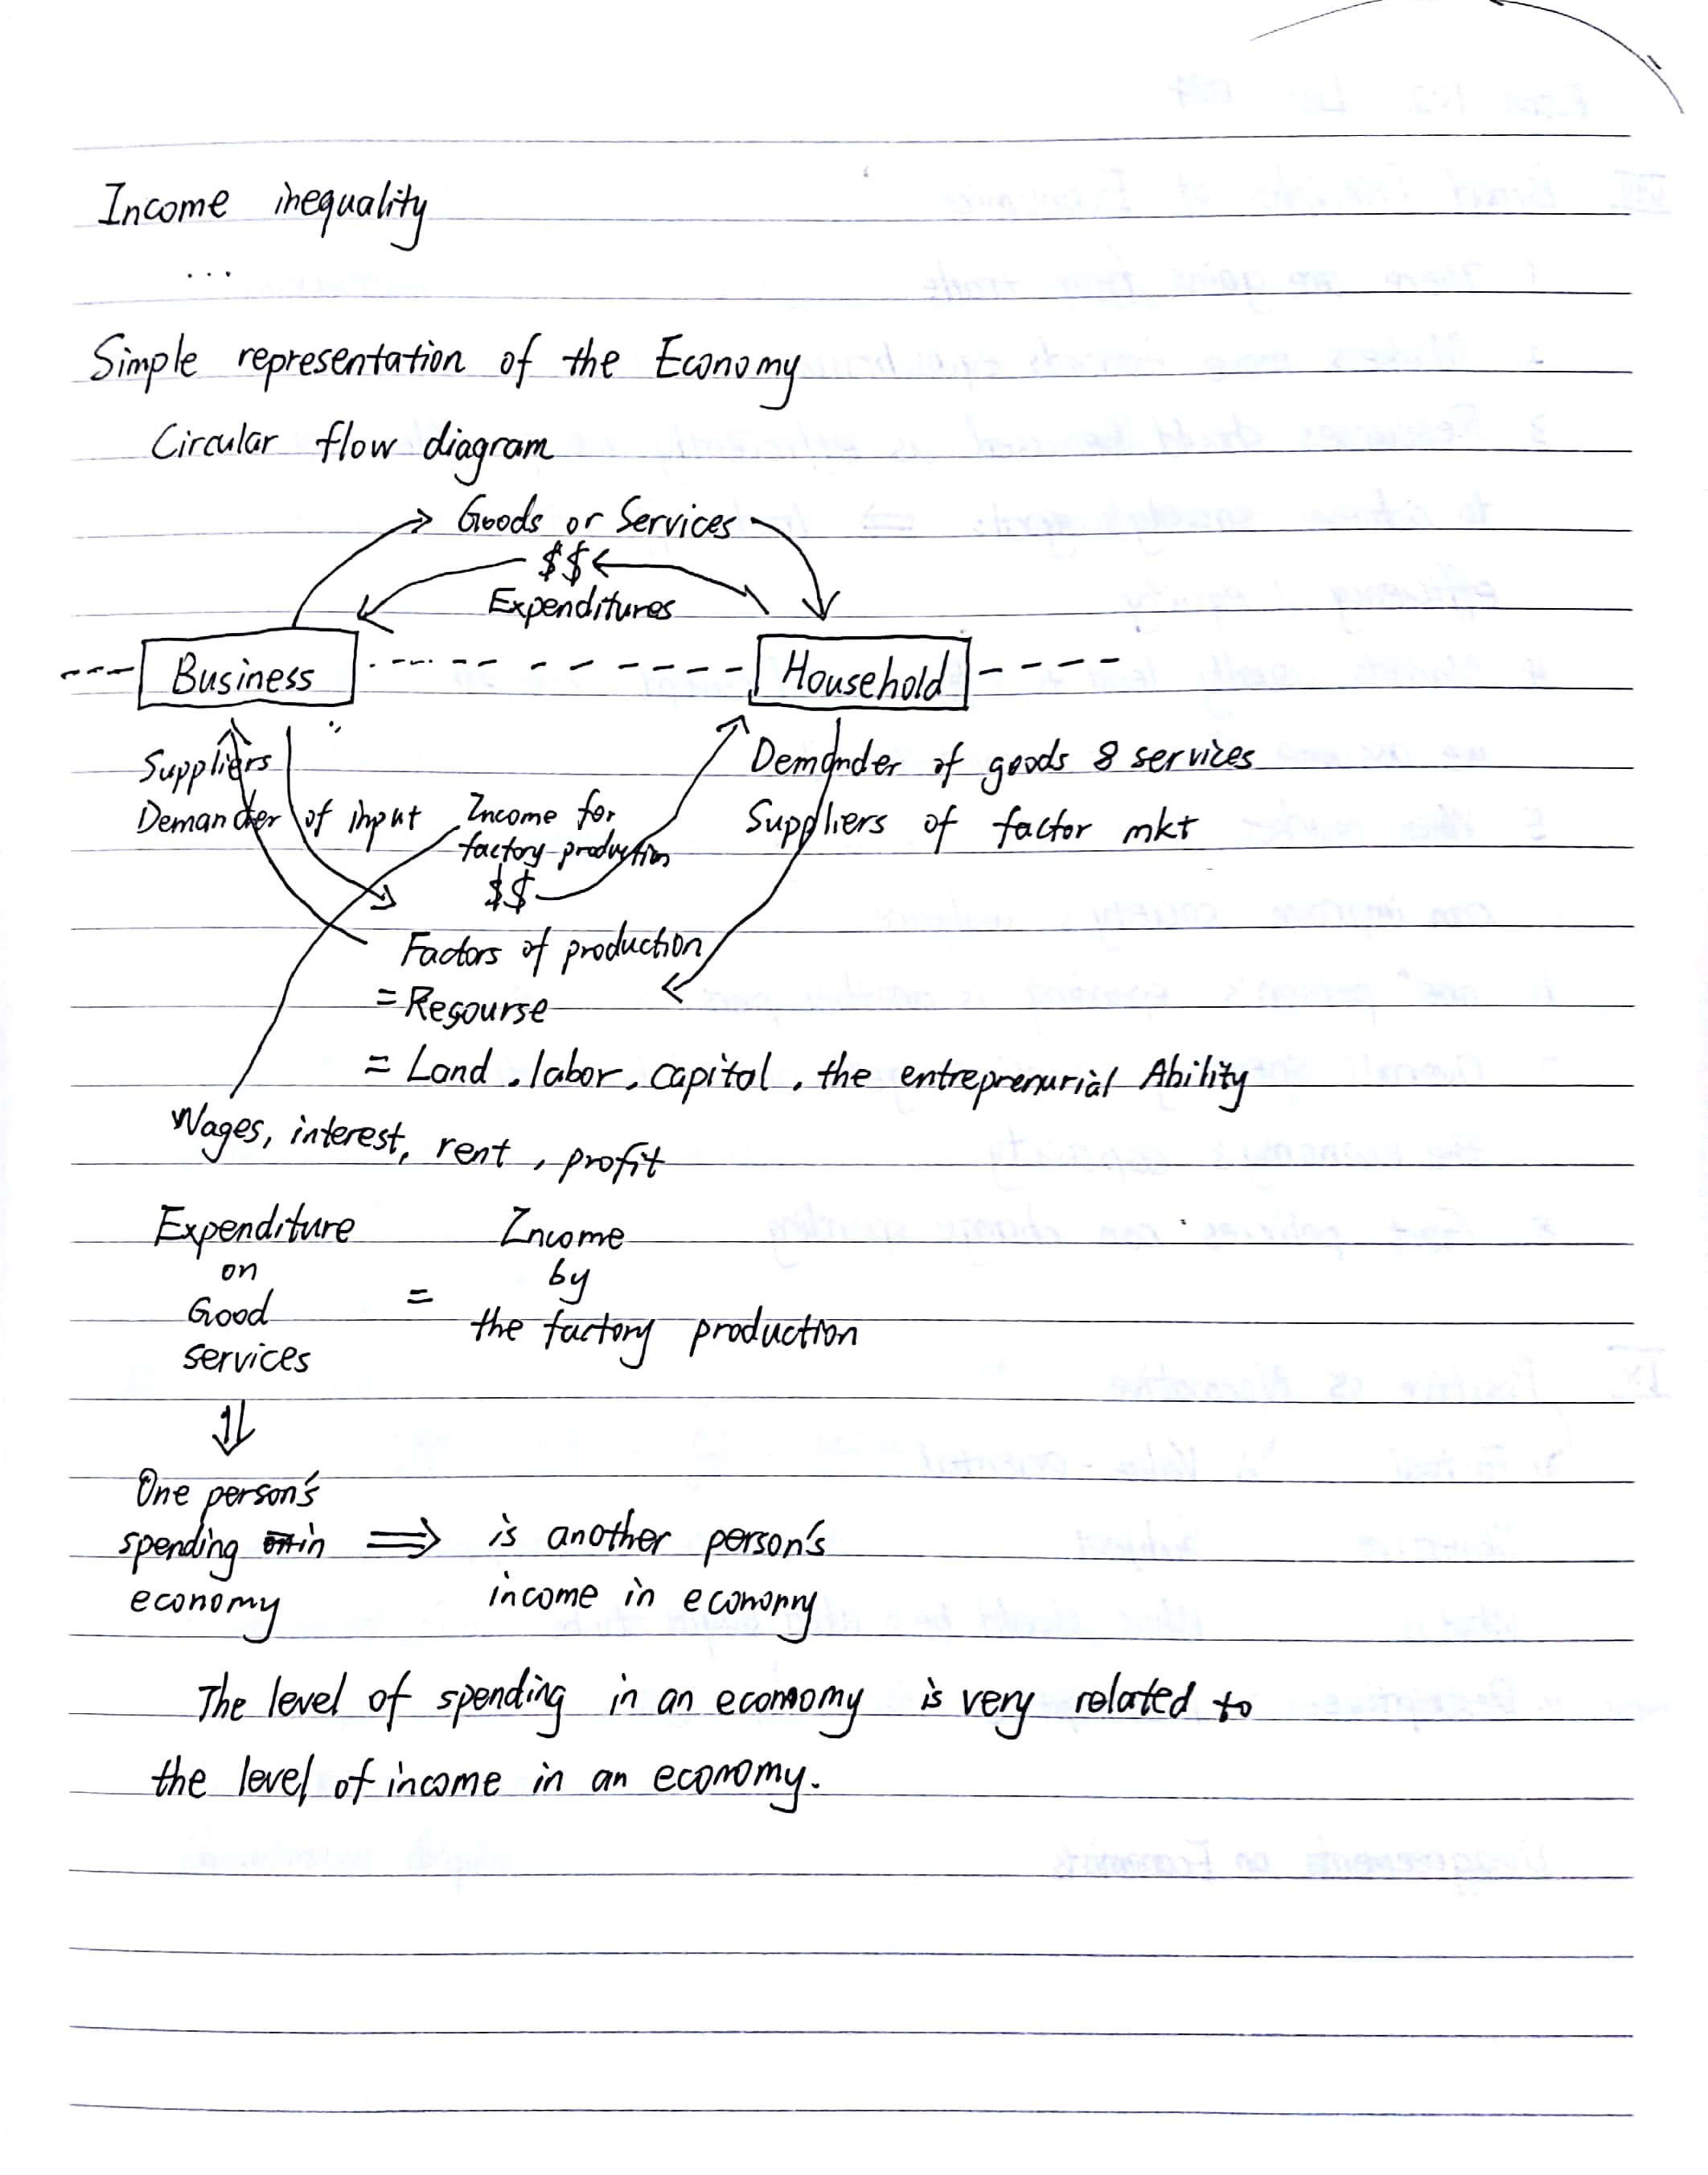 Income inequality
...
Simple representation of the Economy
Circular flow diagram
Goods or Services
$$
Expenditures
Business
Household
Suppliers
Demander of input
Demander of goods & services
Suppliers of factor mkt
Income for
factory production
$$
Factors of production
= Resourse
= Land, labor, capital, the entreprenurial Ability
Wages, interest, rent, profit
Expenditure
on
Good
services
=
Income
by
the factory production
One person's
spending in
economy
is another person's
income in economy
The level of spending in an economy is very related to
the level of income in an economy.